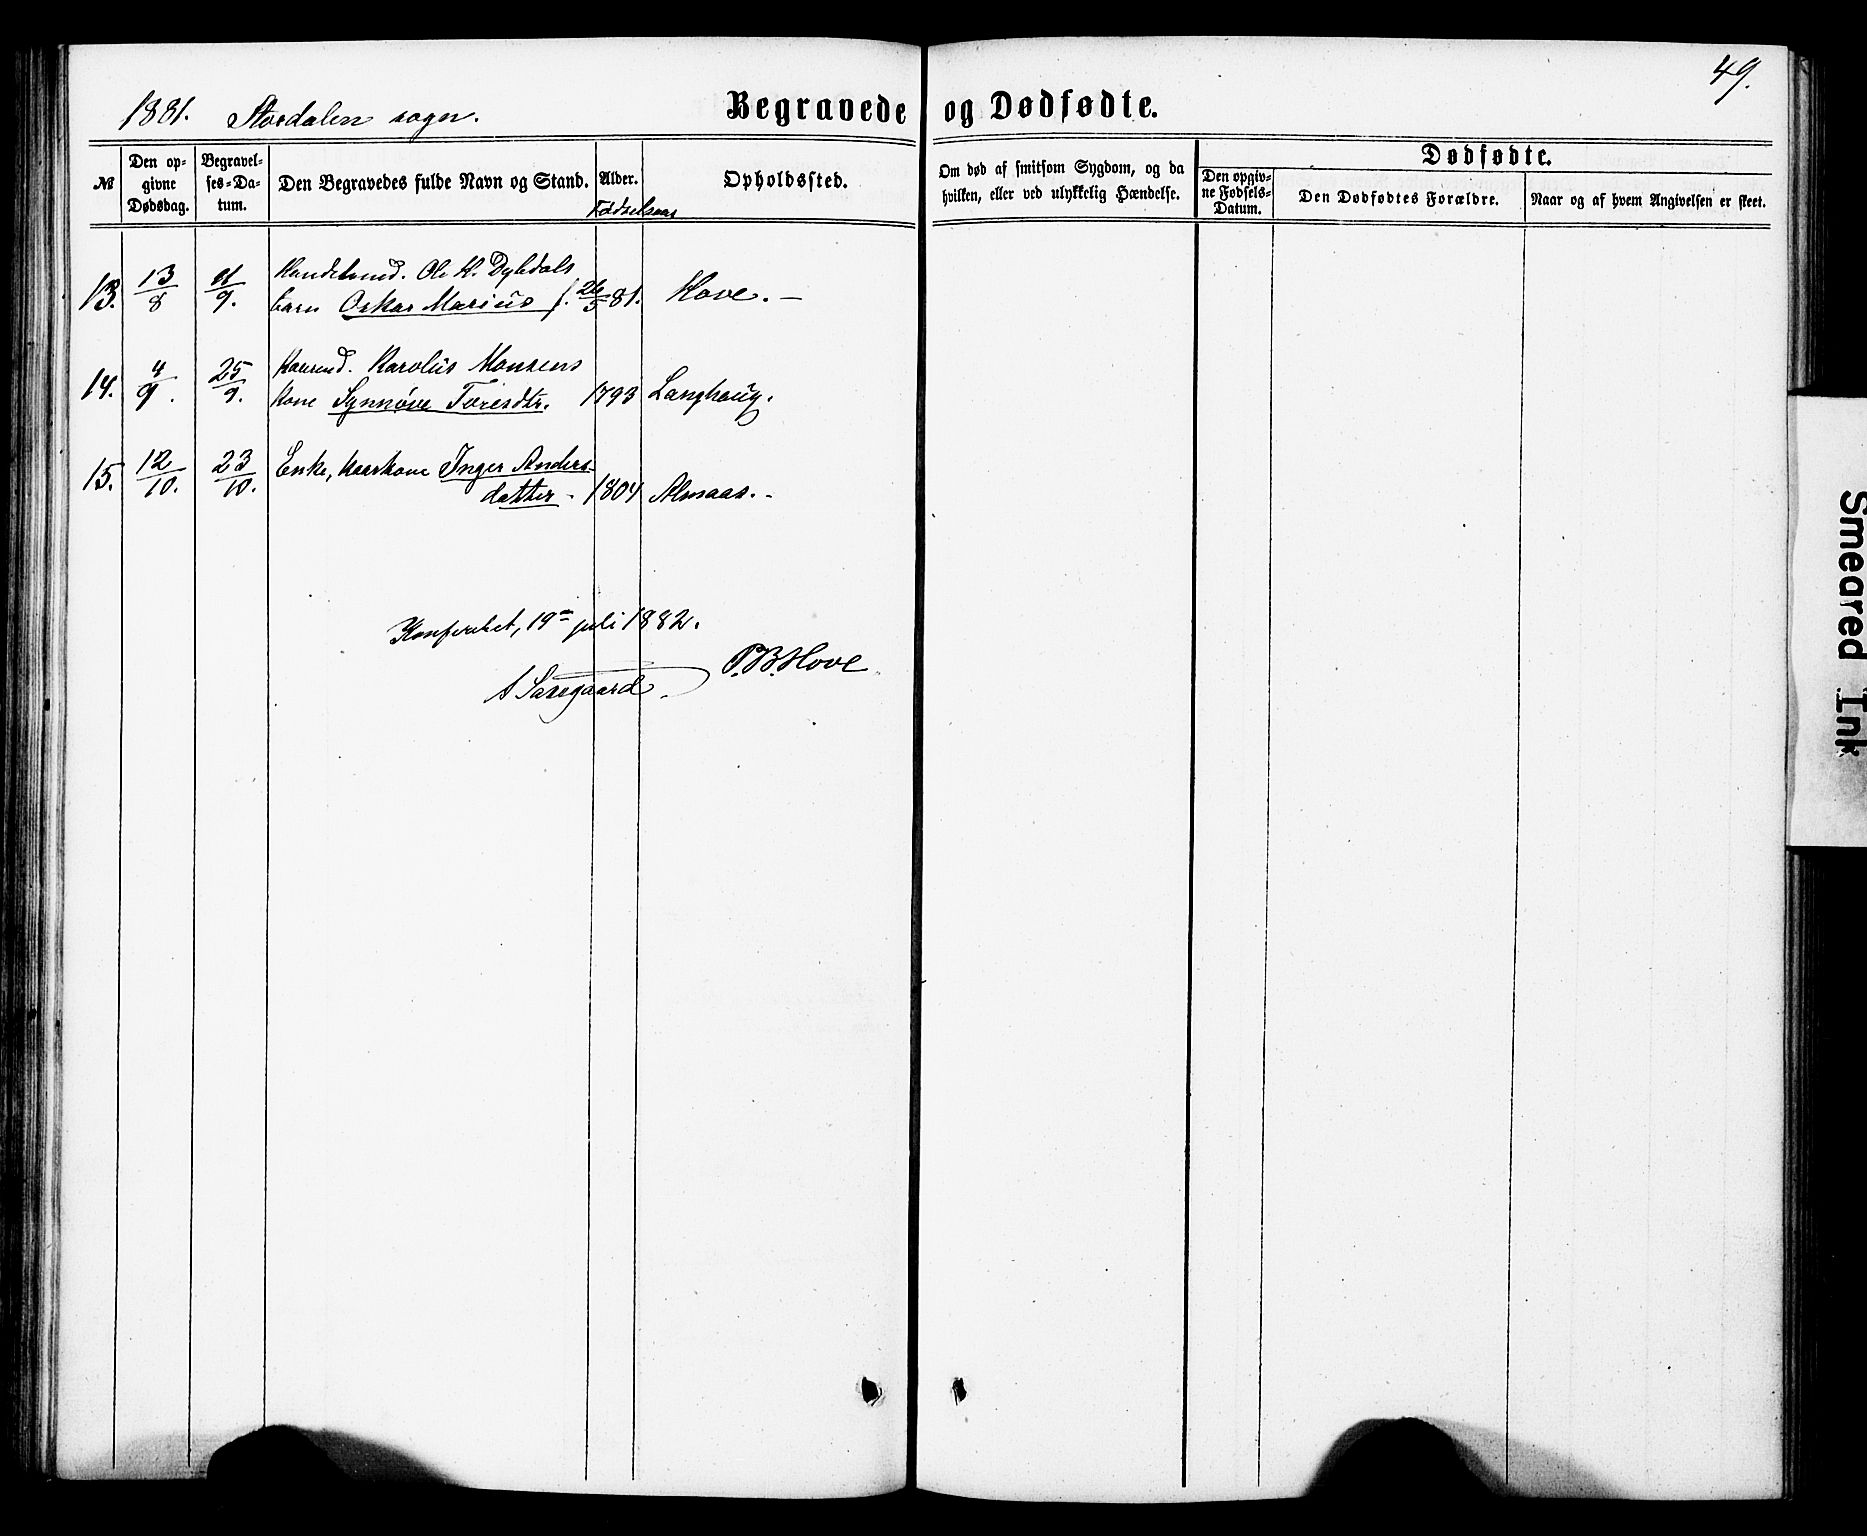 49.
1881. Stordalen sogn. Begravede og Dødfødte.
№ Den opgivne Dødsdag. Begravelses-Datum. Den Begravedes fulde Navn og Stand. Alder. Fødselsaar Opholdssted. Om død af smitsom Sygdom, og da hvilken, eller ved ulykkelig Hændelse. Dødfødte. Den opgivne Fødsels-Datum. Den Dødfødtes Forældre. Naar og af hvem Angivelsen er skeet.
13. 13/8 11/9. Handelsmd. Ole K. Dybdals
barn Oskar Marius f. 26/5 81. Hove. —
14. 4/9. 25/9. Kaarmd. Karolus Monsens
kone Synnøve Toresdtr. 1793 Langhaug.
15. 12/10. 23/10. Enke, kaarkone Inger Anders-
datter - 1804 Almaas. -
Konfereret, 19de juli 1882.
P.B. Hove
A Saxegaard.
Smeared Ink